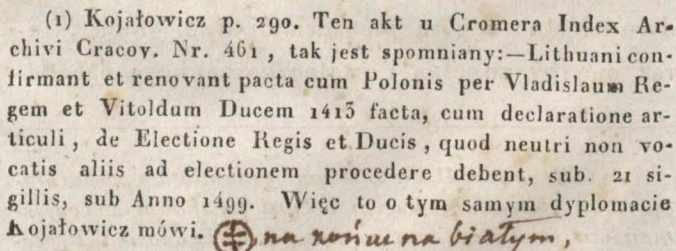 (1) Kojałowicz p. 290. Ten akt u Cromera Index Ar-
chivi Cracov. Nr. 461, tak jest spomniany:—Lithuani con-
firmant et renovant pacta cum Polonis per Vladislaum Re-
gem et Vitoldum Ducem 1413 facta, cum declaratione ar-
ticuli, de Electione Regis et Ducis, quod neutri non vo-
catis aliis ad electionem procedere debent, sub. 21 si-
gillis, sub Anno 1499. Więc to o tym samym dyplomacie
Kojałowicz mówi. na końcu na białym,